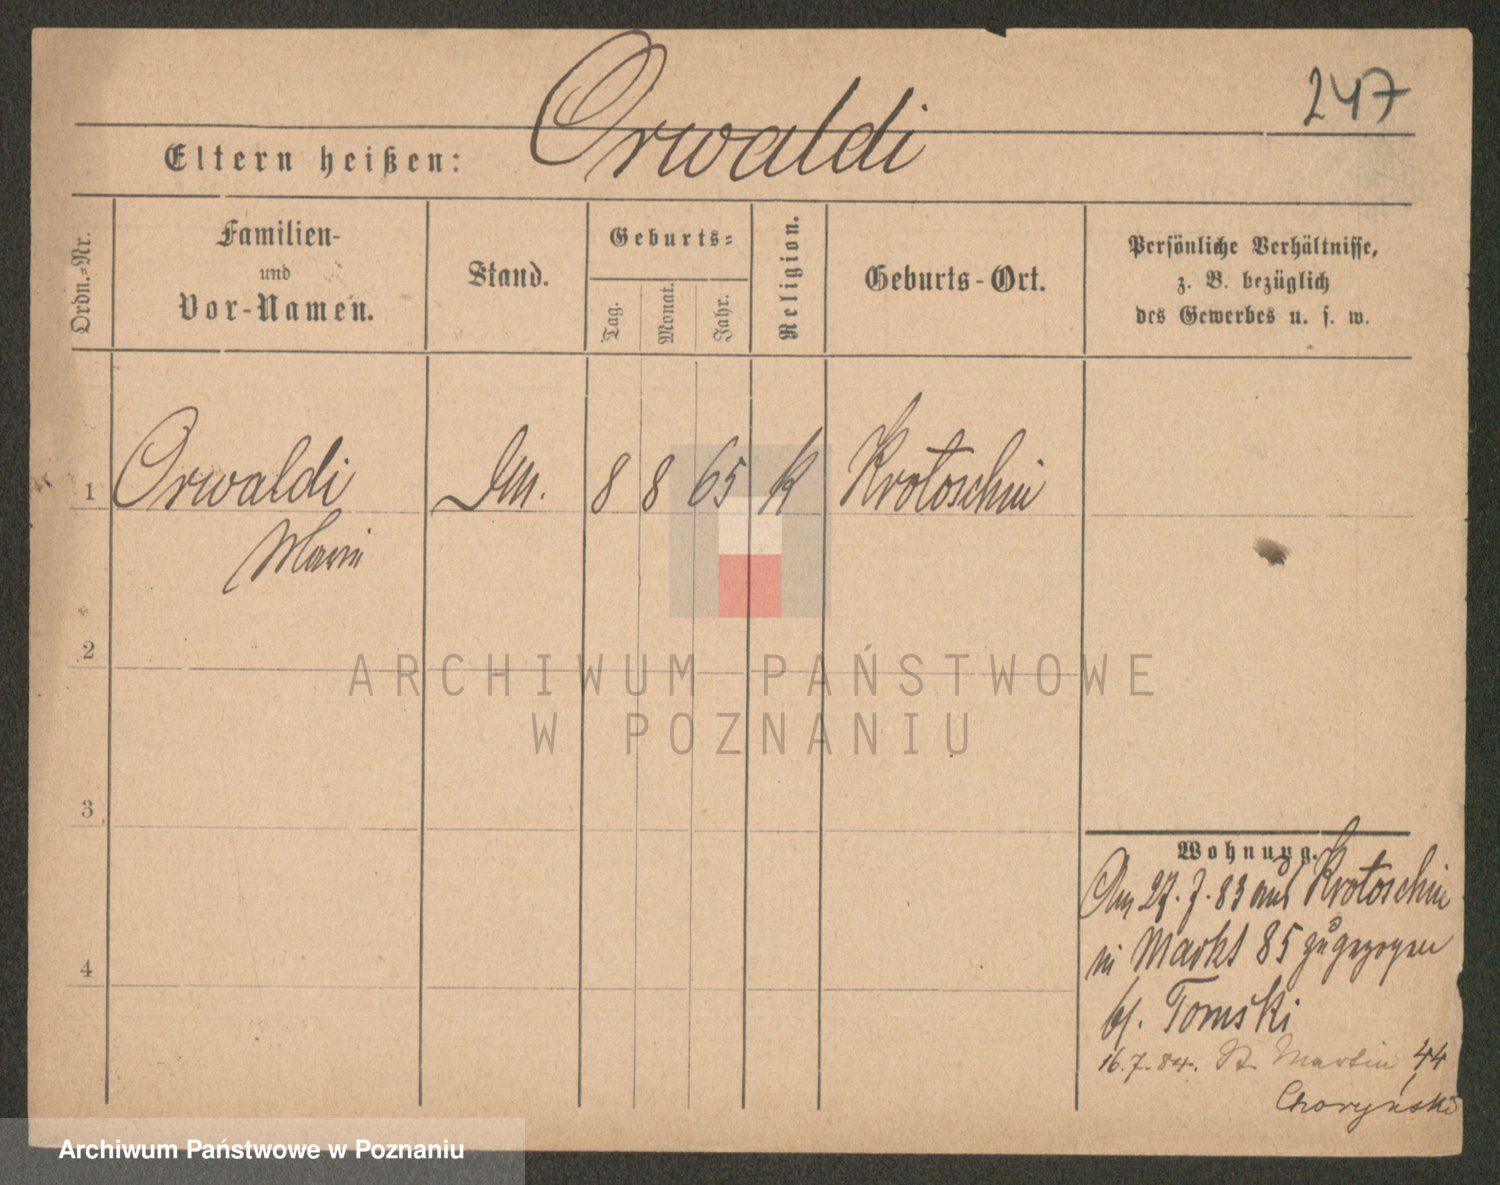 247
Orwaldi
Eltern heißen:
Ordn.=Nr.
Familien-
und
Vor-Namen.
Stand.
Geburts=
Tag.
Monat.
Jahr.
Religion.
Geburts-Ort.
Persönliche Verhältnisse,
z. B. bezüglich
des Gewerbes u. s. w.
1 Orwaldi 8 8 65 k Krotoschin
Marie
2
3
4
ARCHIWUM PAŃSTWOWE
W POZNANIU
Wohnung.
Am 27.7.83 aus Krotoschin
in Markt 85 zugezogen
bf. Tomski
16.7.84. St. Martin 44
Choryński
Archiwum Państwowe w Poznaniu